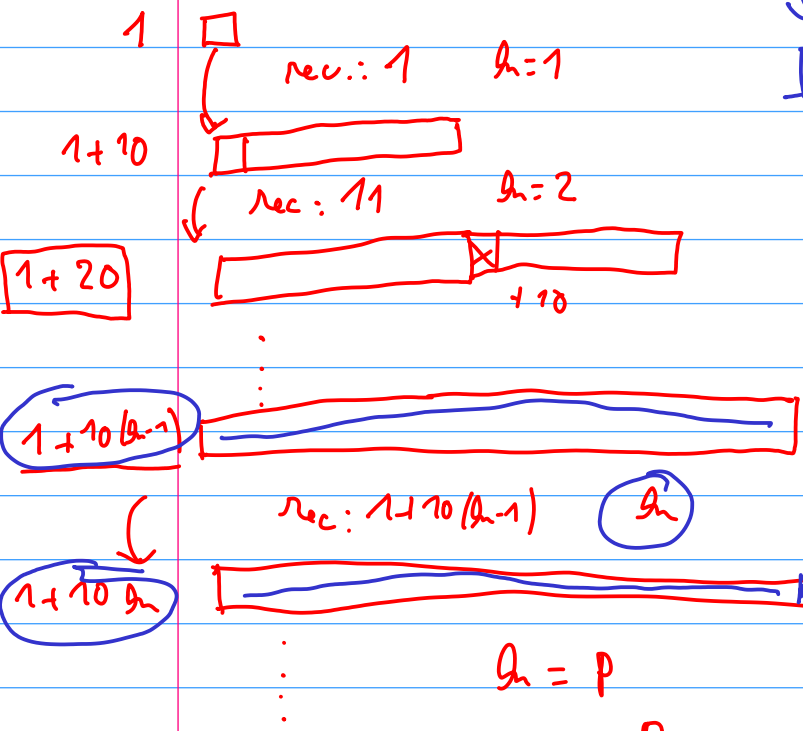 1
rec.: 1 k=1
1+10
rec: 11 k=2
1+20
+10
1+10(k-1)
rec: 1+10(k-1) k
1+10k
k = p